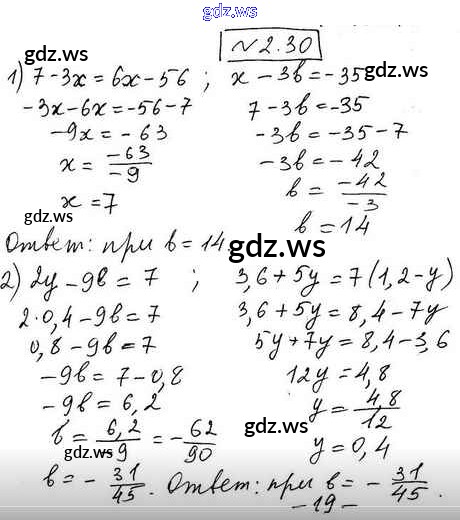 gdz.ws
№2.30
1) 7-3x=6x-56 ; x-3b=-35
-3x-6x=-56-7 7-3b=-35
-9x=-63 -3b=-35-7
x=\frac{-63}{-9} -3b=-42
x=7 b=\frac{-42}{-3}
b=14
Ответ: при b=14.
2) 2y-9b=7 ; 3,6+5y=7(1,2-y)
2·0,4-9b=7 3,6+5y=8,4-7y
0,8-9b=7 5y+7y=8,4-3,6
-9b=7-0,8 12y=4,8
-9b=6,2 y=\frac{4,8}{12}
b=\frac{6,2}{-9}=-\frac{62}{90} y=0,4
b=-\frac{31}{45}. Ответ: при b=-\frac{31}{45}.
-19-
gdz.ws
gdz.ws
gdz.ws
gdz.ws
gdz.ws
gdz.ws
gdz.ws
gdz.ws